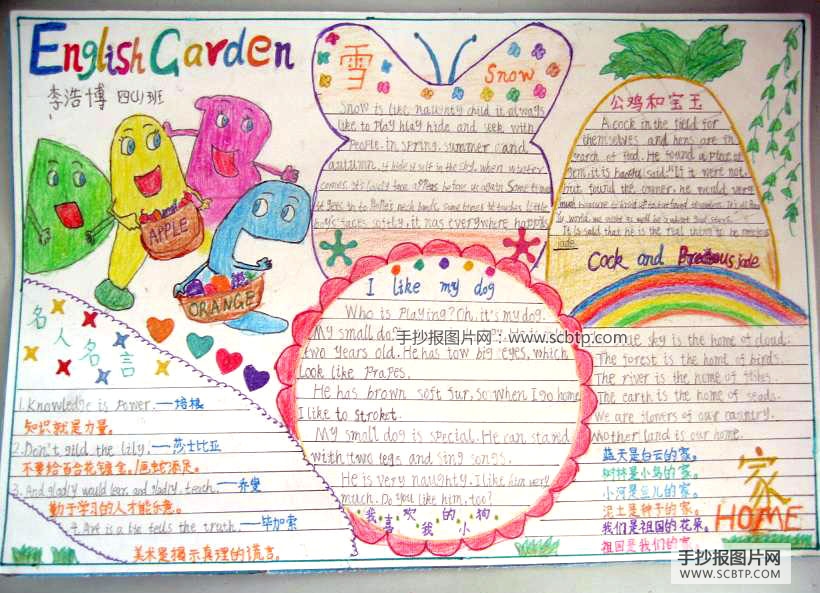 English Garden
李浩博 四(4)班
APPLE
ORANGE
雪
Snow
Snow is like naughty child it always
like to play hide and seek with
People. in spring, summer and
autumn. it hide itself in the sky. when winter
comes before us again Sometimes
faces softly, it was everywhere
公鸡和宝玉
A cock in the field for
themselves and hens are in
search of food. He found a piece of
it is said "If it were not
but found the owner, he would very
It is said that he is the real thing to be
jade.
Cock and Precious jade
I like my dog
Who is playing? Oh, it's my dog.
My small dog
two years old. He has tow big eyes, which
look like Prapes.
He has brown soft fur, so when I go home
I like to stroket.
My small dog is special. He can stand
with two legs and sing songs.
He is very naughty. I like him very
much. Do you like him, too?
我喜欢的小狗
名人名言
1. Knowledge is Power. —培根
知识就是力量。
2. Don't gild the lily. —莎士比亚
不要给百合花镀金。/画蛇添足。
3. And gladly would lear, and gladly teach. —乔叟
勤于学习的人才能乐意。
4. Art is a lie tells the truth. —毕加索
美术是揭示真理的谎言。
sky is the home of cloud.
The forest is the home of birds.
The river is the home of fishes.
The earth is the home of seeds.
We are flowers of our country.
Motherland is our home.
蓝天是白云的家。
树林是小鸟的家。
小河是鱼儿的家。
泥土是种子的家。
我们是祖国的花朵。
祖国是我们的家。
家
HOME
手抄报图片网：www.scbtp.com
手抄报图片网
WWW.SCBTP.COM